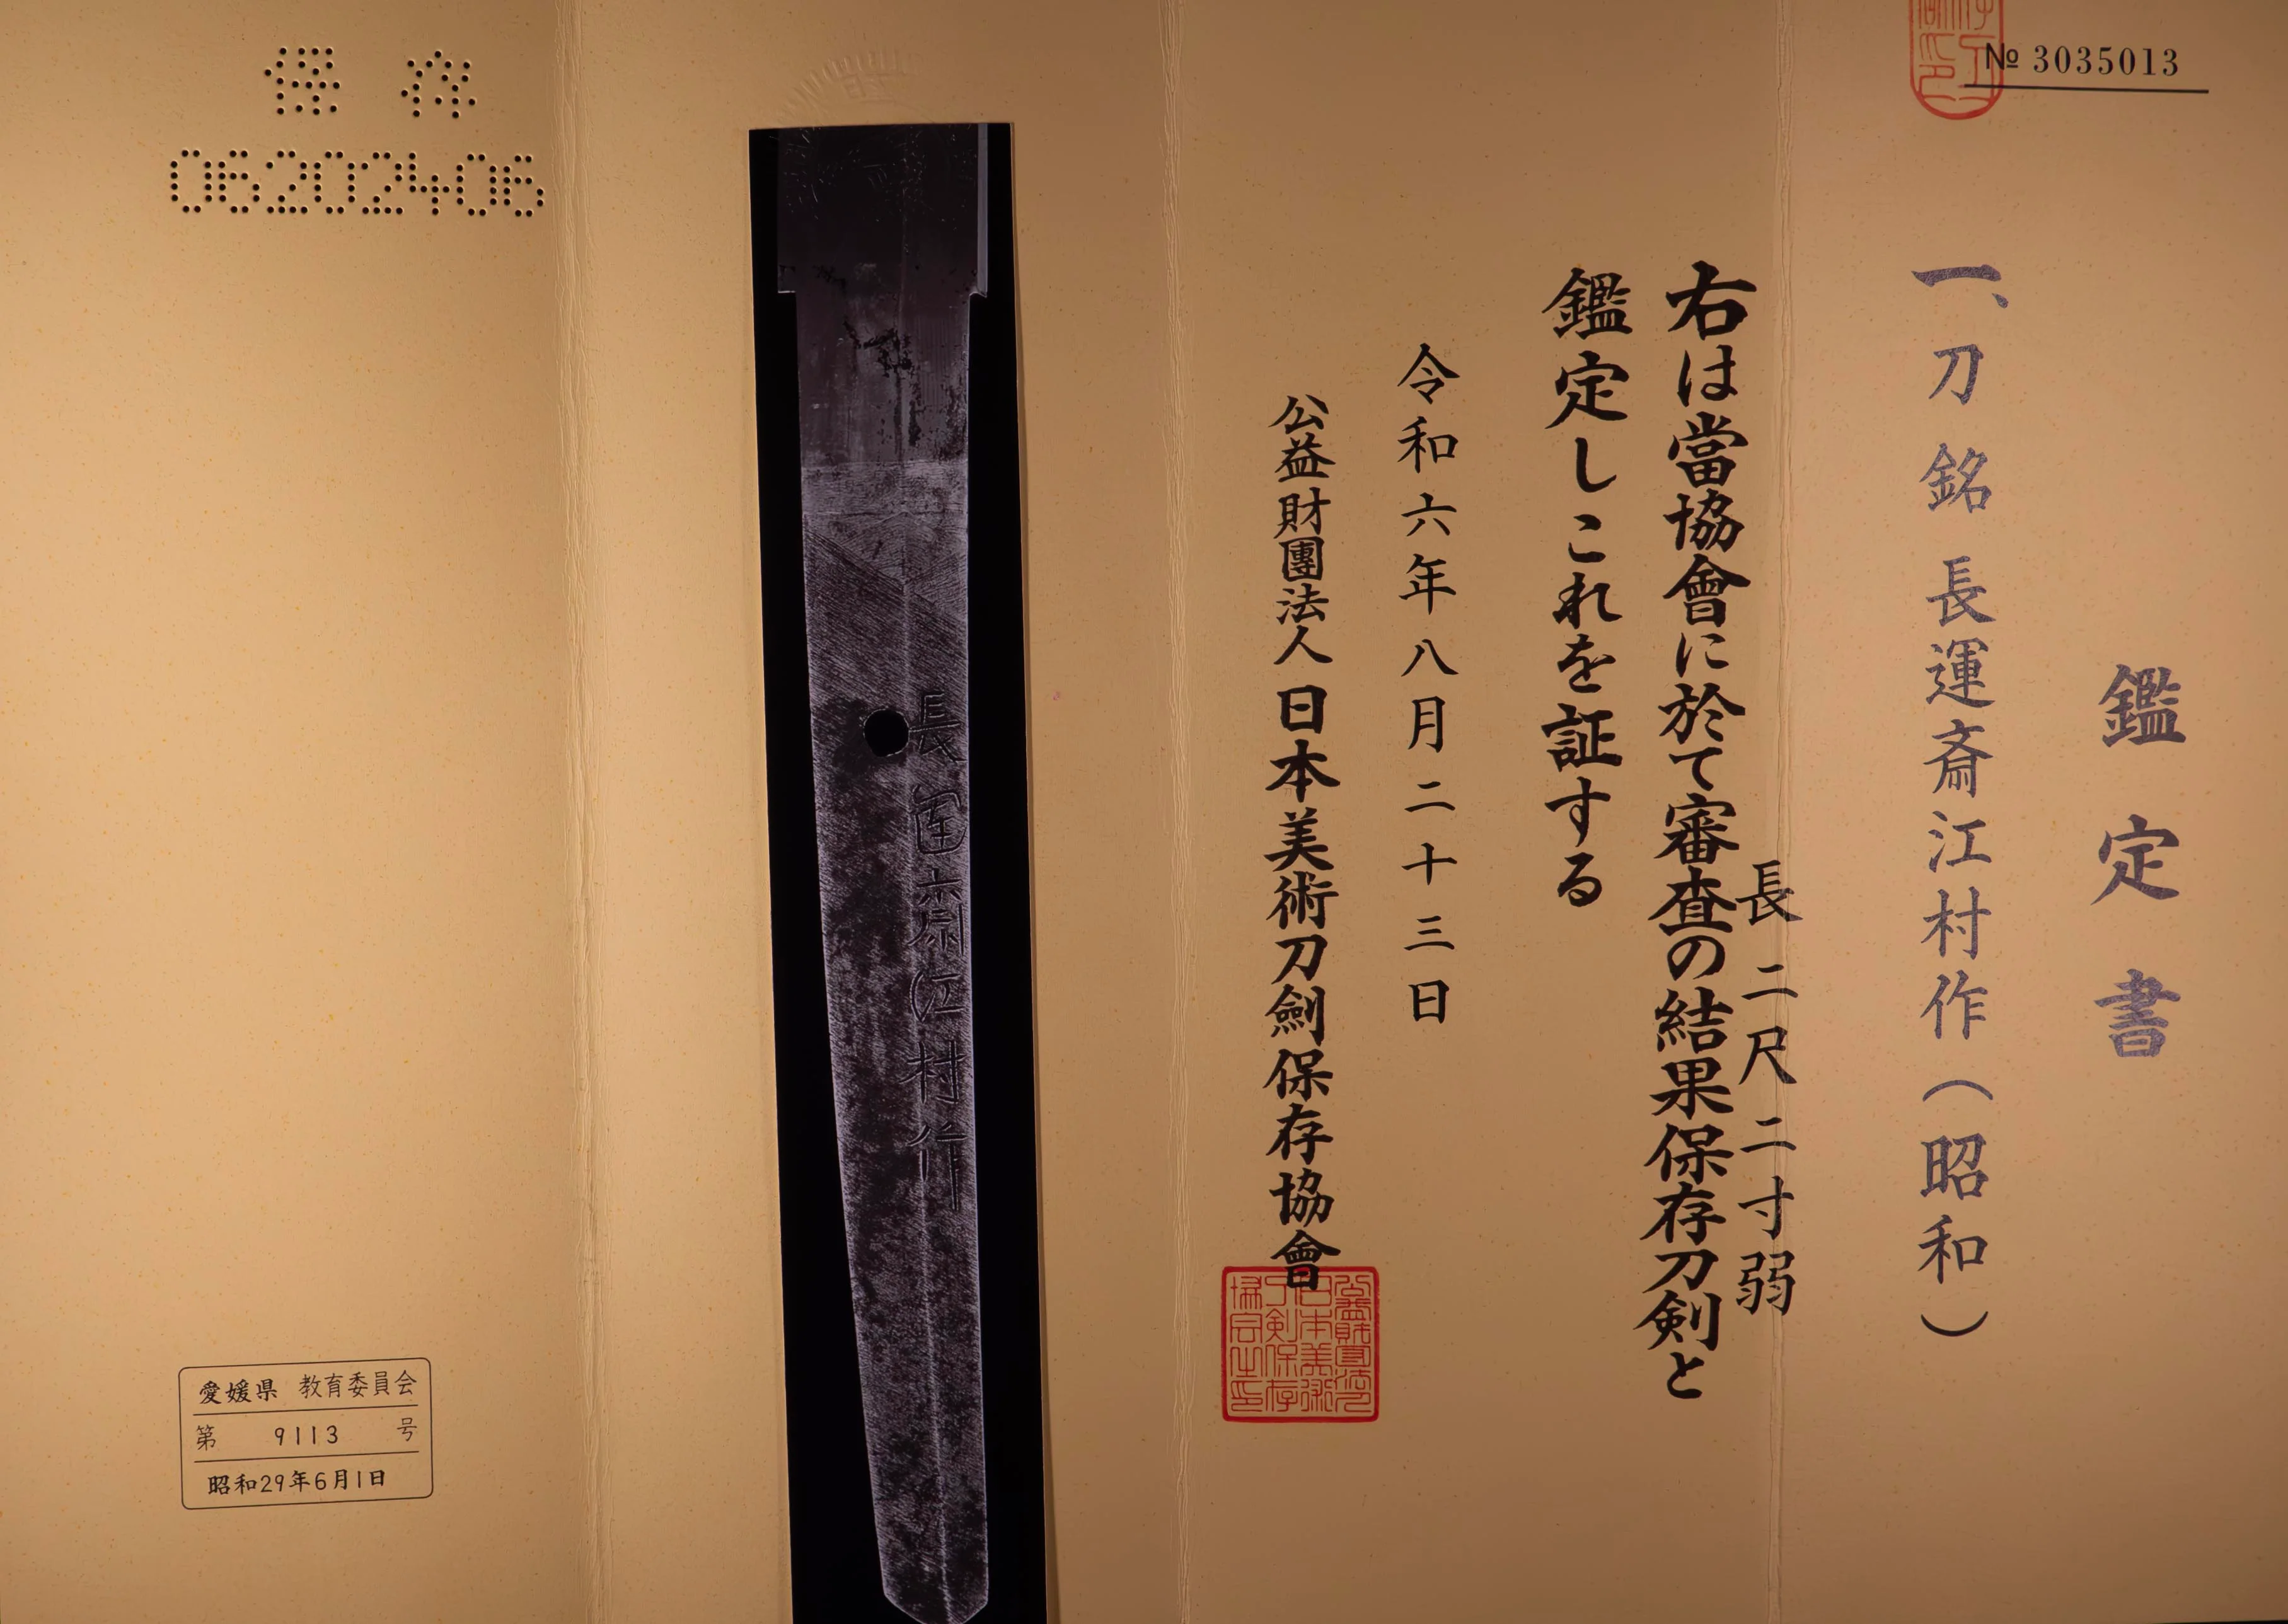 № 3035013
鑑定書
一、刀 銘 長運斎江村作(昭和)
長 二尺二寸弱
右は當協會に於て審査の結果保存刀剣と
鑑定しこれを証する
令和六年八月二十三日
公益財團法人 日本美術刀劍保存協會
長運斎江村作
保存
06202406
愛媛県 教育委員会
第 9113 号
昭和29年6月1日